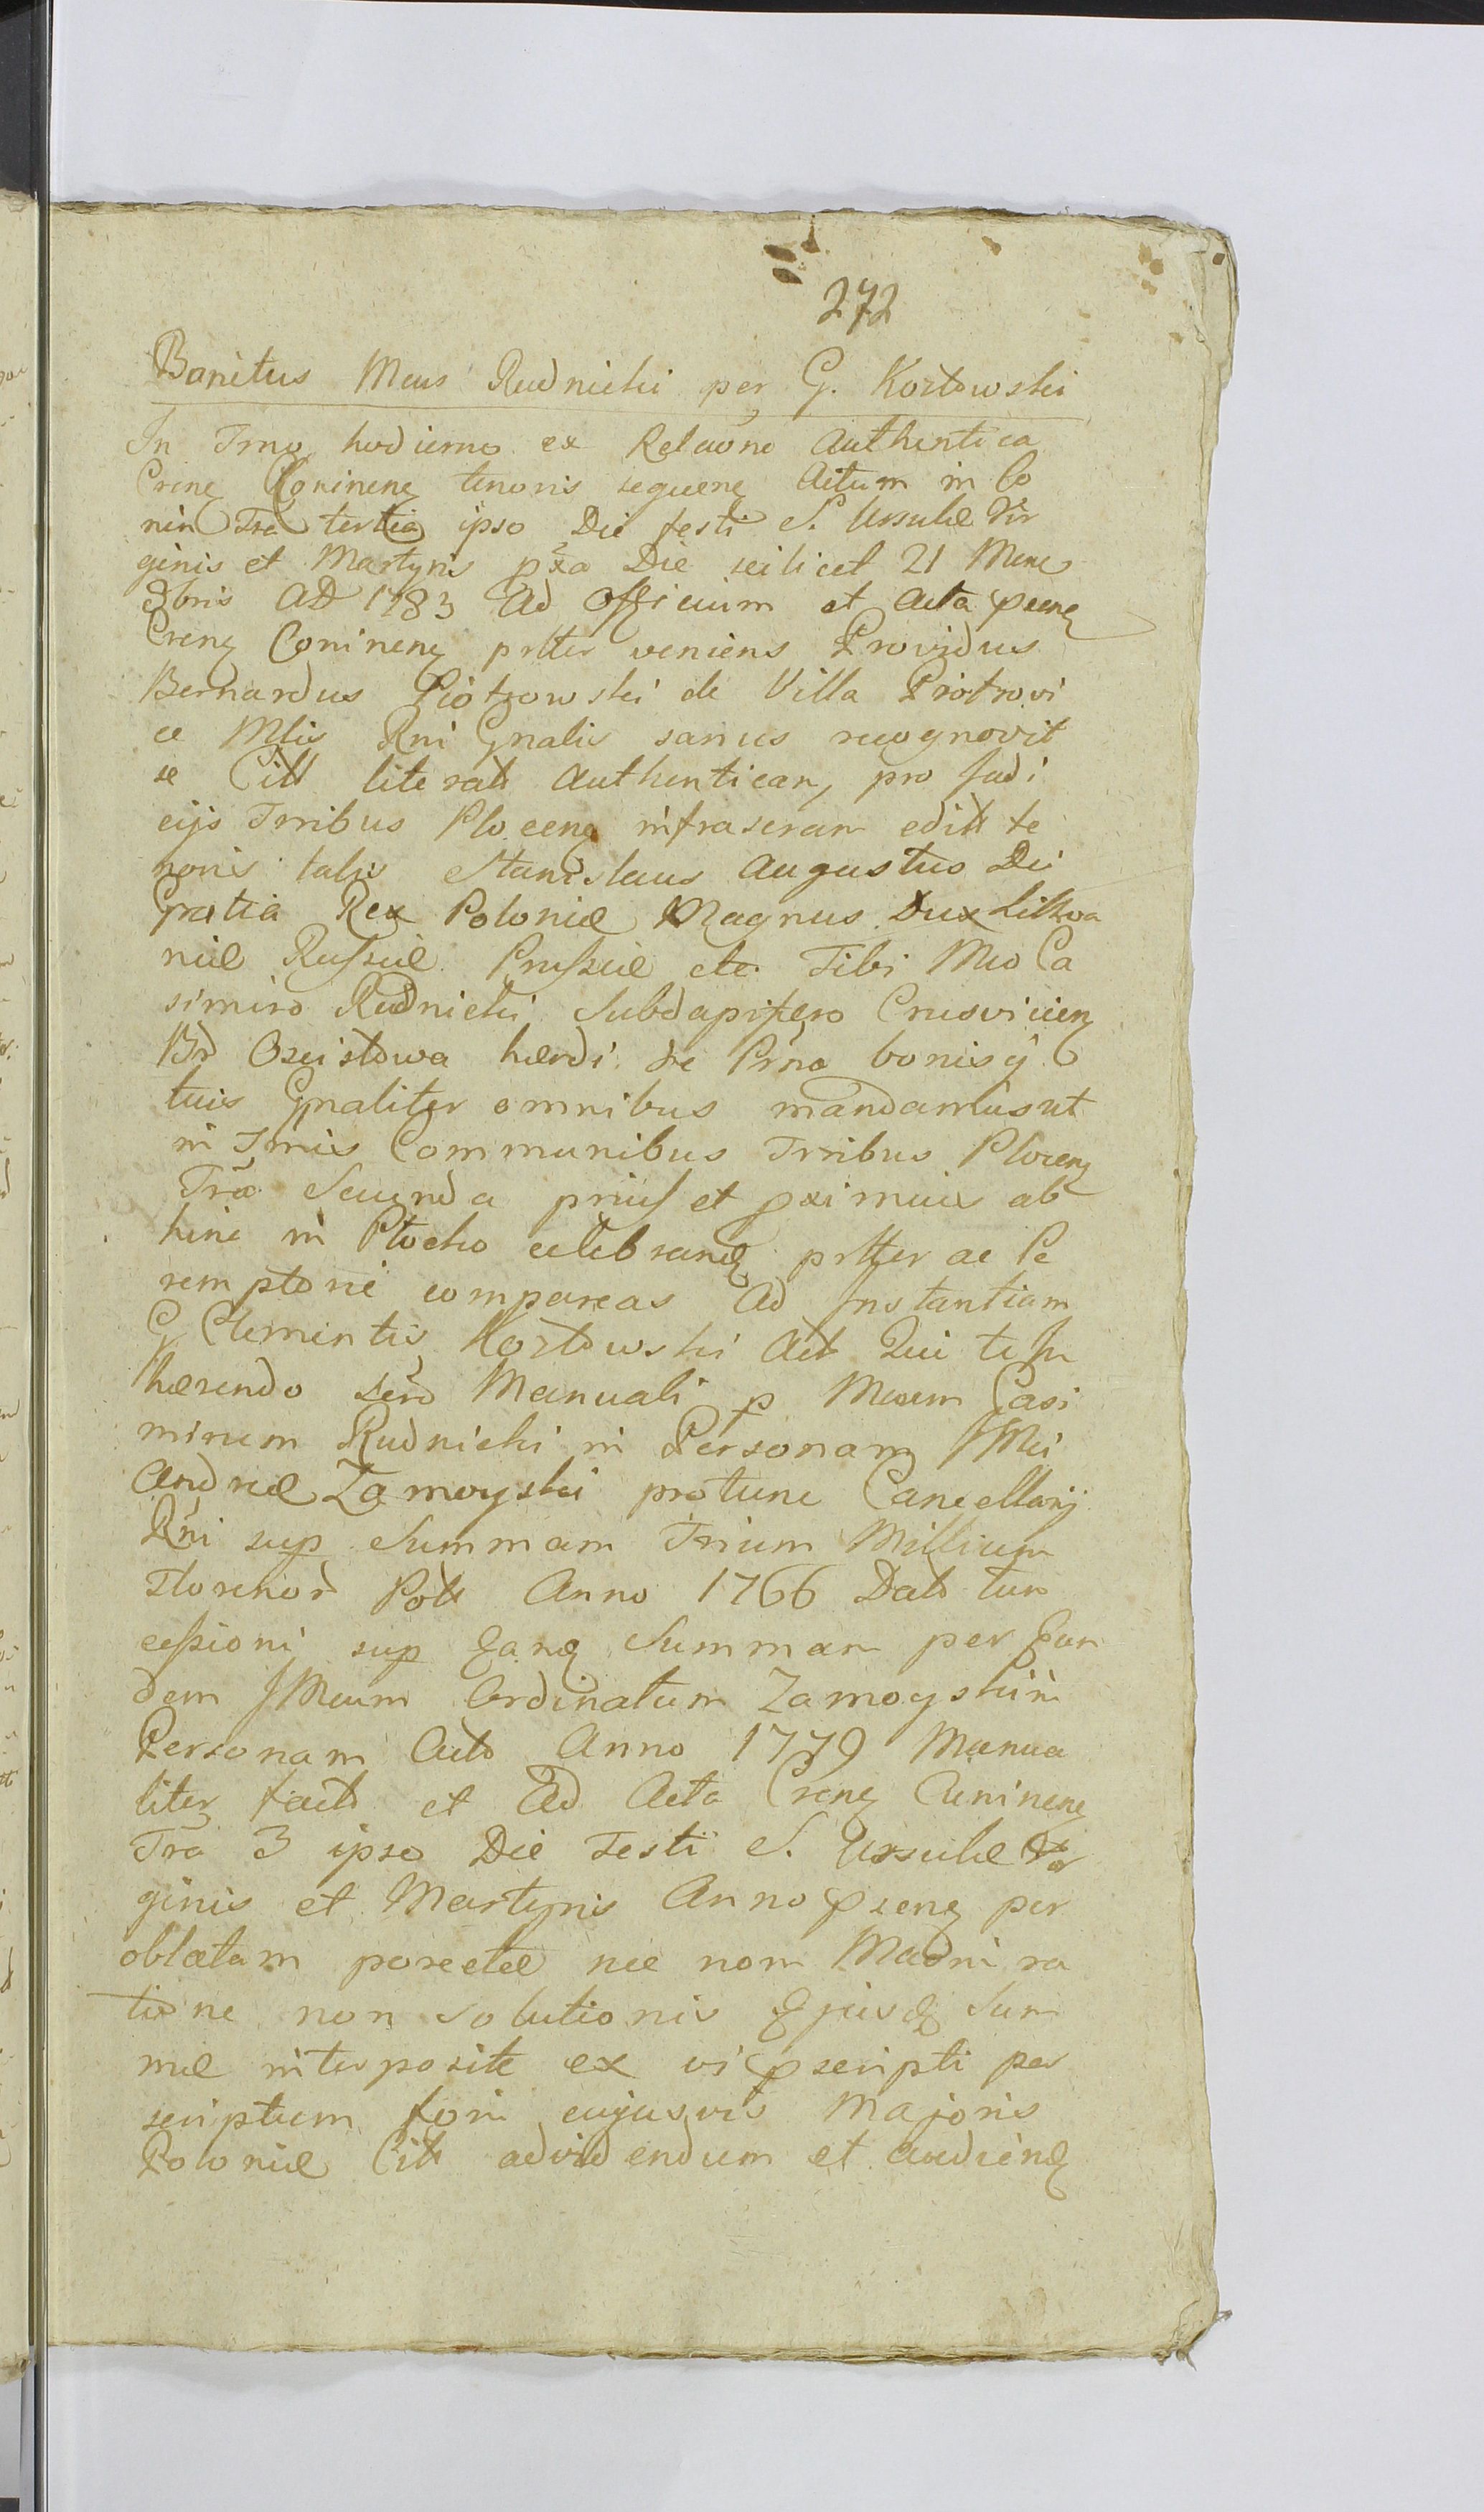 272
Banitus Mcus Rudnicki per G. Kozłowski
In Tmo hodierno ex Relaone Authentica
Crenẽ Coninenẽ tenoris sequenẽ Actum in Co
nin Fra tertia ipso Die festi S. Ursulæ Vir
ginis et Martyris pxa Die scilicet 21 Mens
8bris AD 1783 Ad Officium et Acta psenẽ
Crenẽ Coninenẽ prtter veniens Providus
Bernardus Piotrowski de Villa Piotrovi
ce Mlis Rni Gnalis sanus recognovit
se Citt literatt Authenticam, pro Judi
cijs Trribus Plocenẽ infraseram editt te
noris talis Stanislaus Augustus Dei
Gratia Rex Poloniæ Magnus Dux Lithva
niæ Russiæ Prussiæ etc Tibi Mco Ca
simiro Rudnicki Subdapifero Crusvicienẽ
Bd Oscisłowa hærdi de Prna bonisq
tuis Gnaliter omnibus mandamus ut
in Tmis Communibus Trribus Plocenẽ
Fra Secunda prius et proximius ab
hinc in Płocko celebrand prtter ac Pe
remptorie compareas Ad Instantiam
G Clementis Kozłowski Act Qui te In
hærendo scro Manuali p Mcum Casi
mirum Rudnicki in Personam IMci
Andreæ Zamoyski protunc Cancellarij
Rni sup Summam Trium Millium
Florenor Poll Anno 1766 Dato tum
cessioni sup Eand Summam per Eun
dem IMcum Ordinatum Zamoyski in
Personam Acto Anno 1779 Manua
liter facto et Ad Acta Crenẽ Coninenẽ
Fra 3 ipso Die Festi S. Ursulæ Vir
ginis et Martyris Anno psenẽ per
oblatam porectæ nec non Madni ra
tione non solutionis Ejusd Sum
mæ interposite ex vi pscripti per
scriptum fori cujusvis Majoris
Poloniæ Citt advidendum et audiend